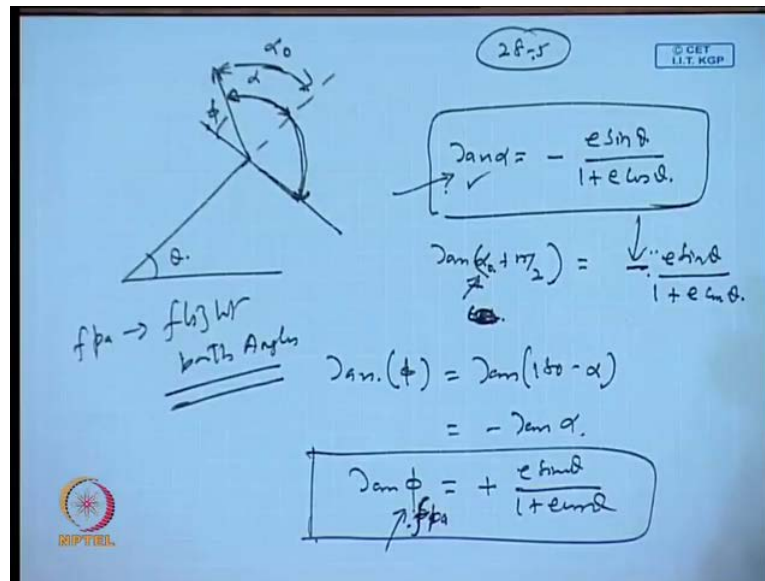 28-5
© CET
I.I.T. KGP
α₀
α
φ
θ.
tan α = - e sin θ / 1 + e cos θ.
tan(α₀ + π/2) = - e sin θ / 1 + e cos θ.
fpa → flight
path Angles
tan.(φ) = tan(180 - α)
= - tan α.
tan φ = + e sin θ / 1 + e cos θ
fpa
NPTEL